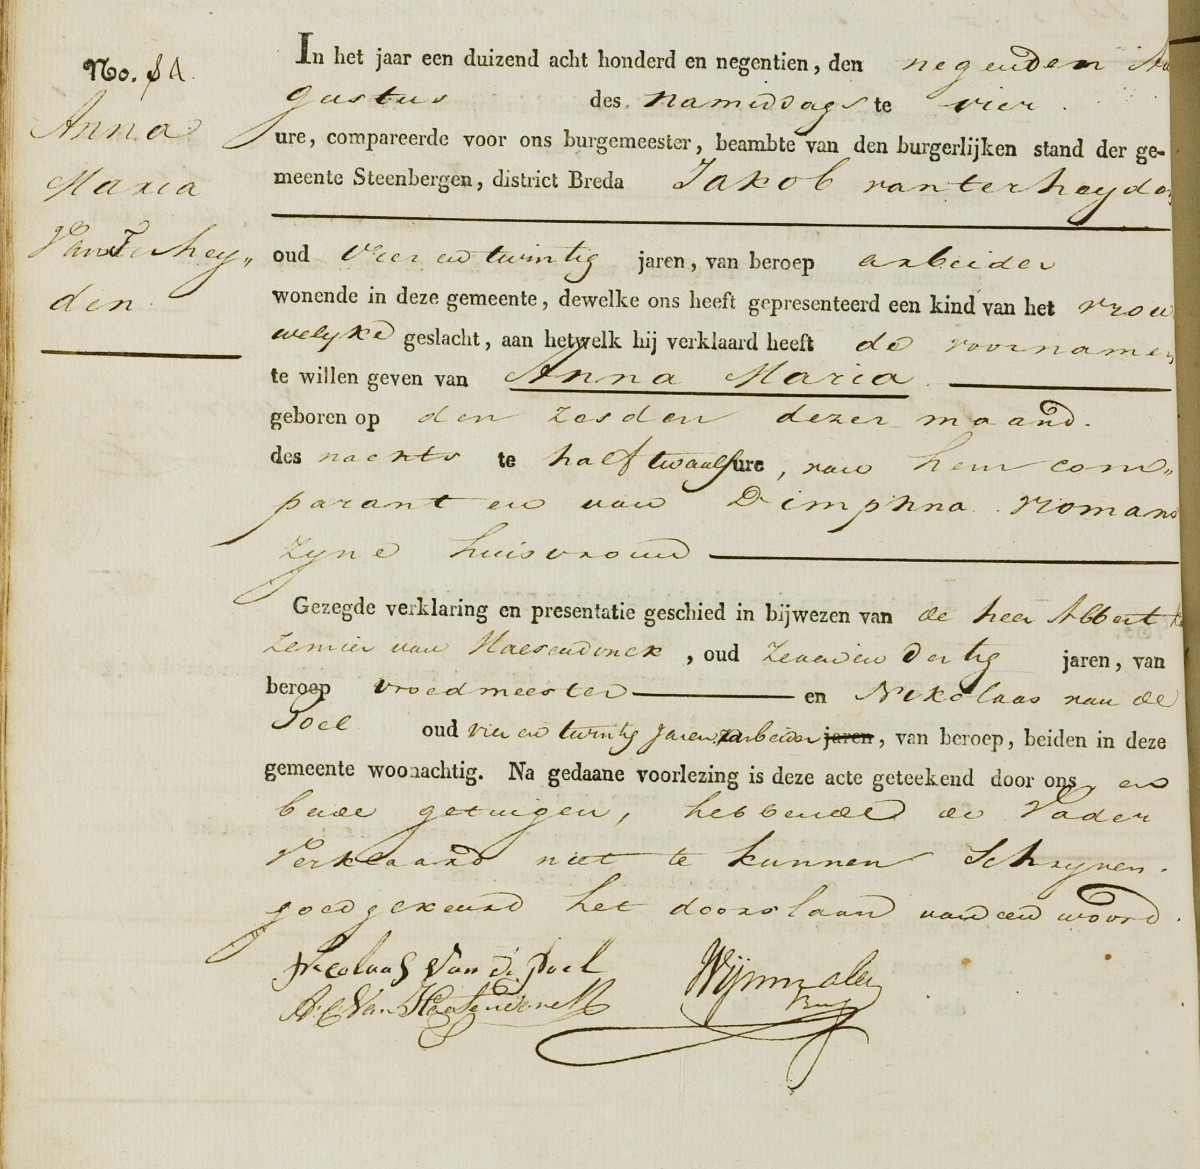 No. 54.
Anna
Maria
Van Terhey„
den
In het jaar een duizend acht honderd en negentien, den negenden Au
gustus des namiddags te vier
ure, compareerde voor ons burgemeester, beambte van den burgerlijken stand der ge-
meente Steenbergen, district Breda Jakob van terheyden
oud vier en twintig jaren, van beroep arbeider
wonende in deze gemeente, dewelke ons heeft gepresenteerd een kind van het vrou
welyke geslacht, aan hetwelk hij verklaard heeft de voornamen
te willen geven van Anna Maria
geboren op den zesden dezer maand.
des nachts te half twaalf ure, van hem com„
parant en van Dimphna Vromans
zyne huisvrouw
Gezegde verklaring en presentatie geschied in bijwezen van de heer Albert
van Haesendonck, oud zeven en dertig jaren, van
beroep vroedmeester en Nikolaas van de
Poel oud vier en twintig jaren arbeider jaren, van beroep, beiden in deze
gemeente woonachtig. Na gedaane voorlezing is deze acte geteekend door ons en
beide getuigen, hebbende de Vader
Verklaard niet te kunnen Schryven.
goedgekeurd het doorslaan van een woord.
Nicolaas Van de Poel
A: C Van Haesendonck